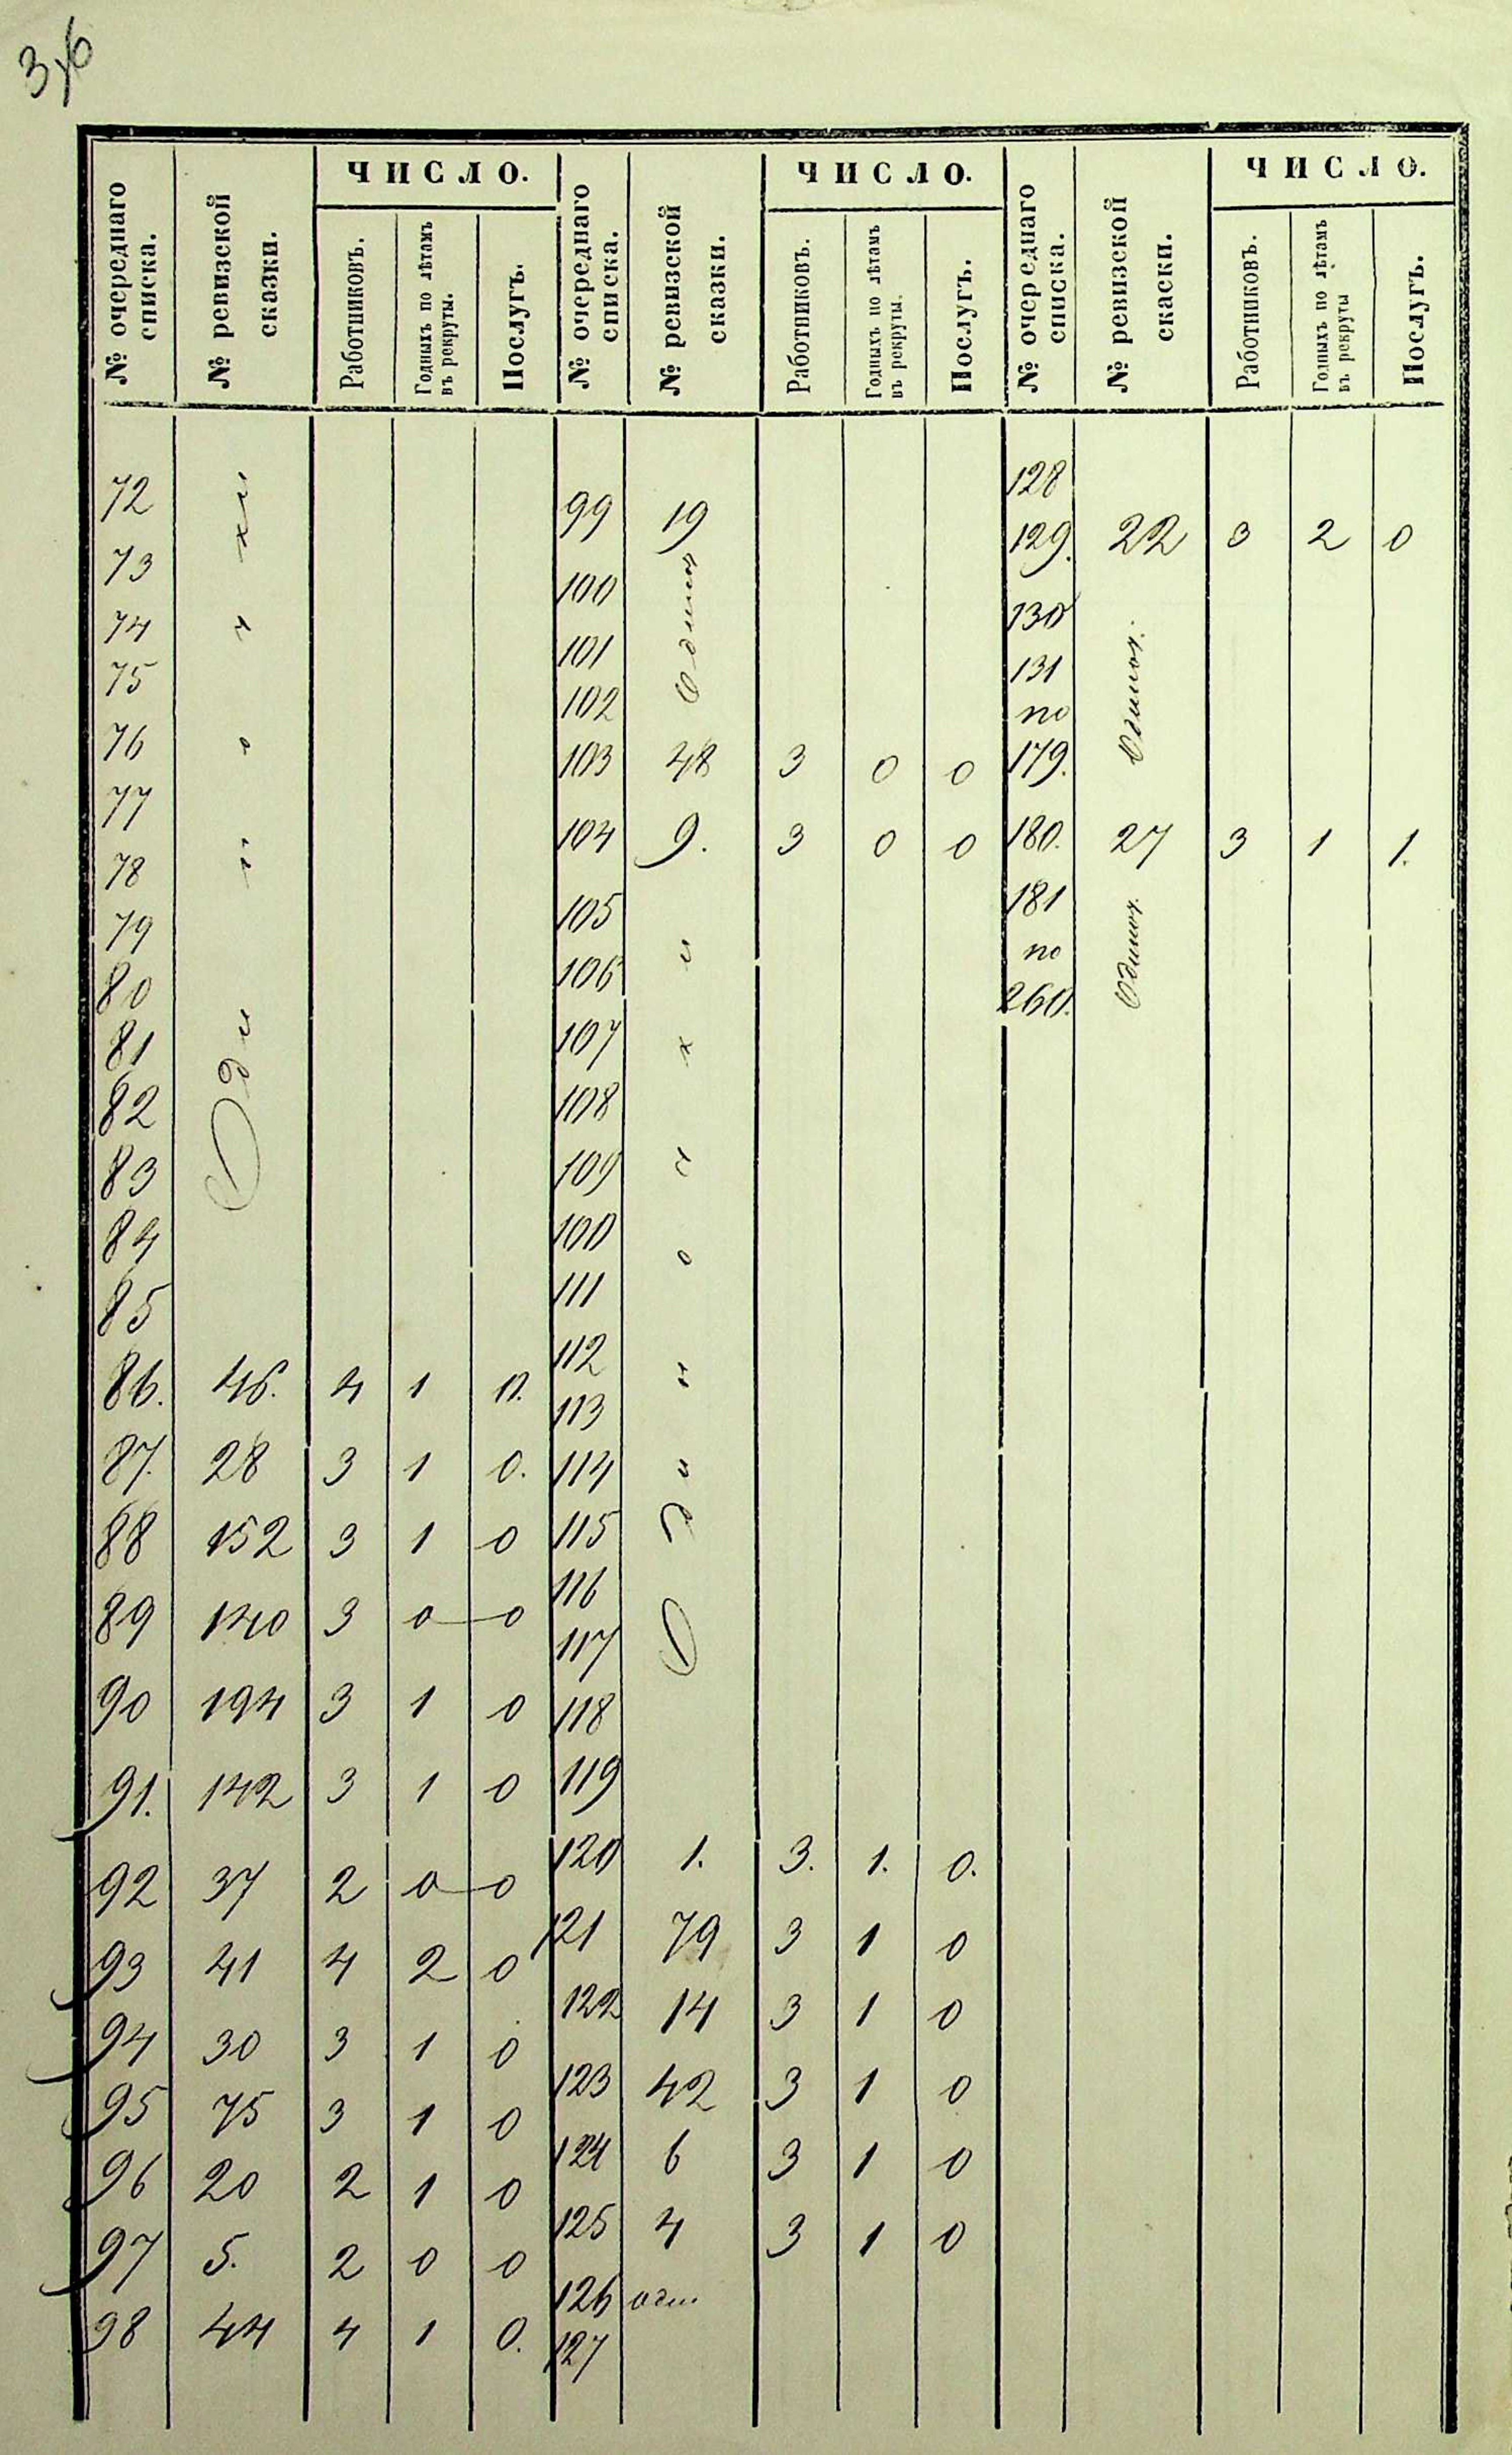 3,6
№ очереднаго списка.
№ ревизской сказки.
ЧИСЛО.
Работниковъ.
Годныхъ по лѣтамъ въ рекруты.
Послугъ.
72
73
74
75
76
77
78
79
80
81
82
83
84
85
Одиночки
86. 46. 4 1
87. 28 3 1 0.
88 152 3 1 0
89 140 3 0 0
90 194 3 1 0
91. 142 3 1 0
92 37 2 0 0
93 41 4 2 0
94 30 3 1 0
95 75 3 1 0
96 20 2 1 0
97 5. 2 0 0
98 44 4 1 0.
№ очереднаго списка.
№ ревизской сказки.
ЧИСЛО.
Работниковъ.
Годныхъ по лѣтамъ въ рекруты.
Послугъ.
99 19
100
101
102
103 48 3 0 0
104 9. 3 0 0
105
106
107
108
109
100
111
112
113
114
115
116
117
118
119
Одиночки
120 1. 3. 1. 0.
121 79 3 1 0
122 14 3 1 0
123 42 3 1 0
124 6 3 1 0
125 4 3 1 0
126
127
№ очереднаго списка.
№ ревизской скаски.
ЧИСЛО.
Работниковъ.
Годныхъ по лѣтамъ въ рекруты
Послугъ.
128
129. 22 3 2 0
130
131
по
179.
Одиноч.
180. 27 3 1 1.
181
по
260.
Одиноч.